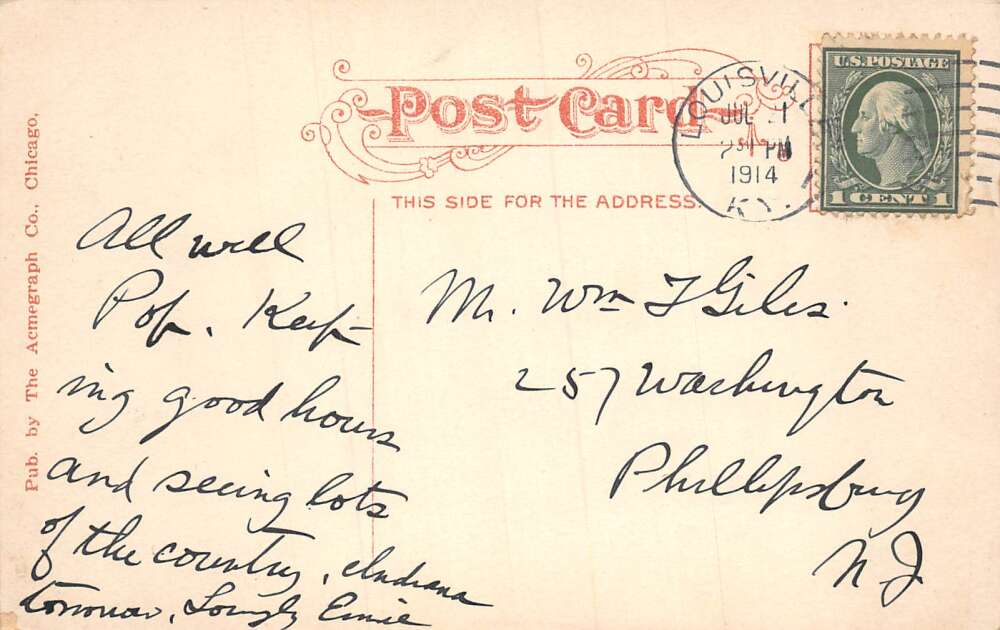 Post Card
THIS SIDE FOR THE ADDRESS.
Pub. by The Acmegraph Co., Chicago.
LOUISVILLE
JUL 1
230 PM
1914
KY.
U.S. POSTAGE
1 CENT 1
All well
Pop. Keep-
ing good hours
and seeing lots
of the country, Indiana
tomorrow, Lovingly Ernie
Mr. Wm F Giles.
257 Washington
Phillipsburg
N J